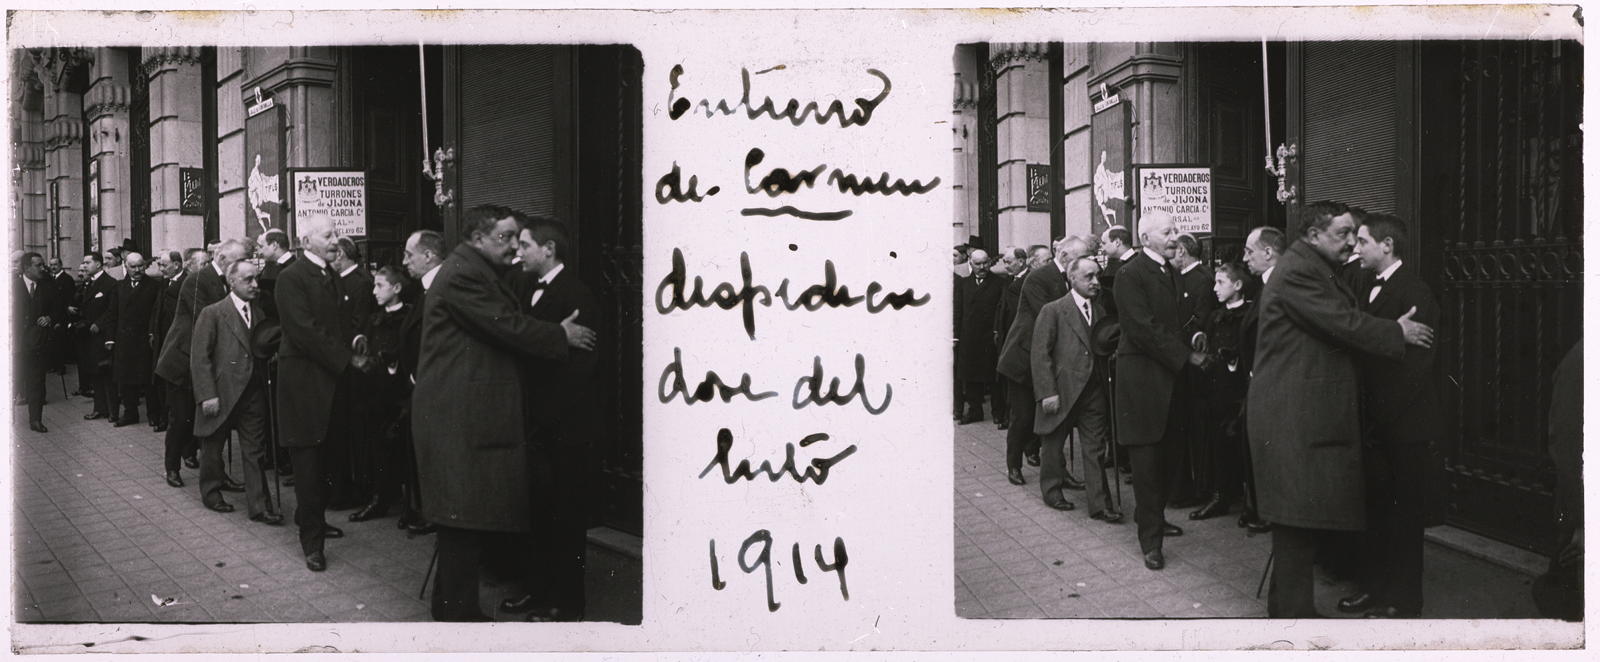 Entierro
de Carmen
despidien
dose del
luto
1914
VERDADEROS
TURRONES
de JIJONA
ANTONIO GARCIA Cª
PELAYO 62
VERDADEROS
TURRONES
de JIJONA
ANTONIO GARCIA Cª
PELAYO 62